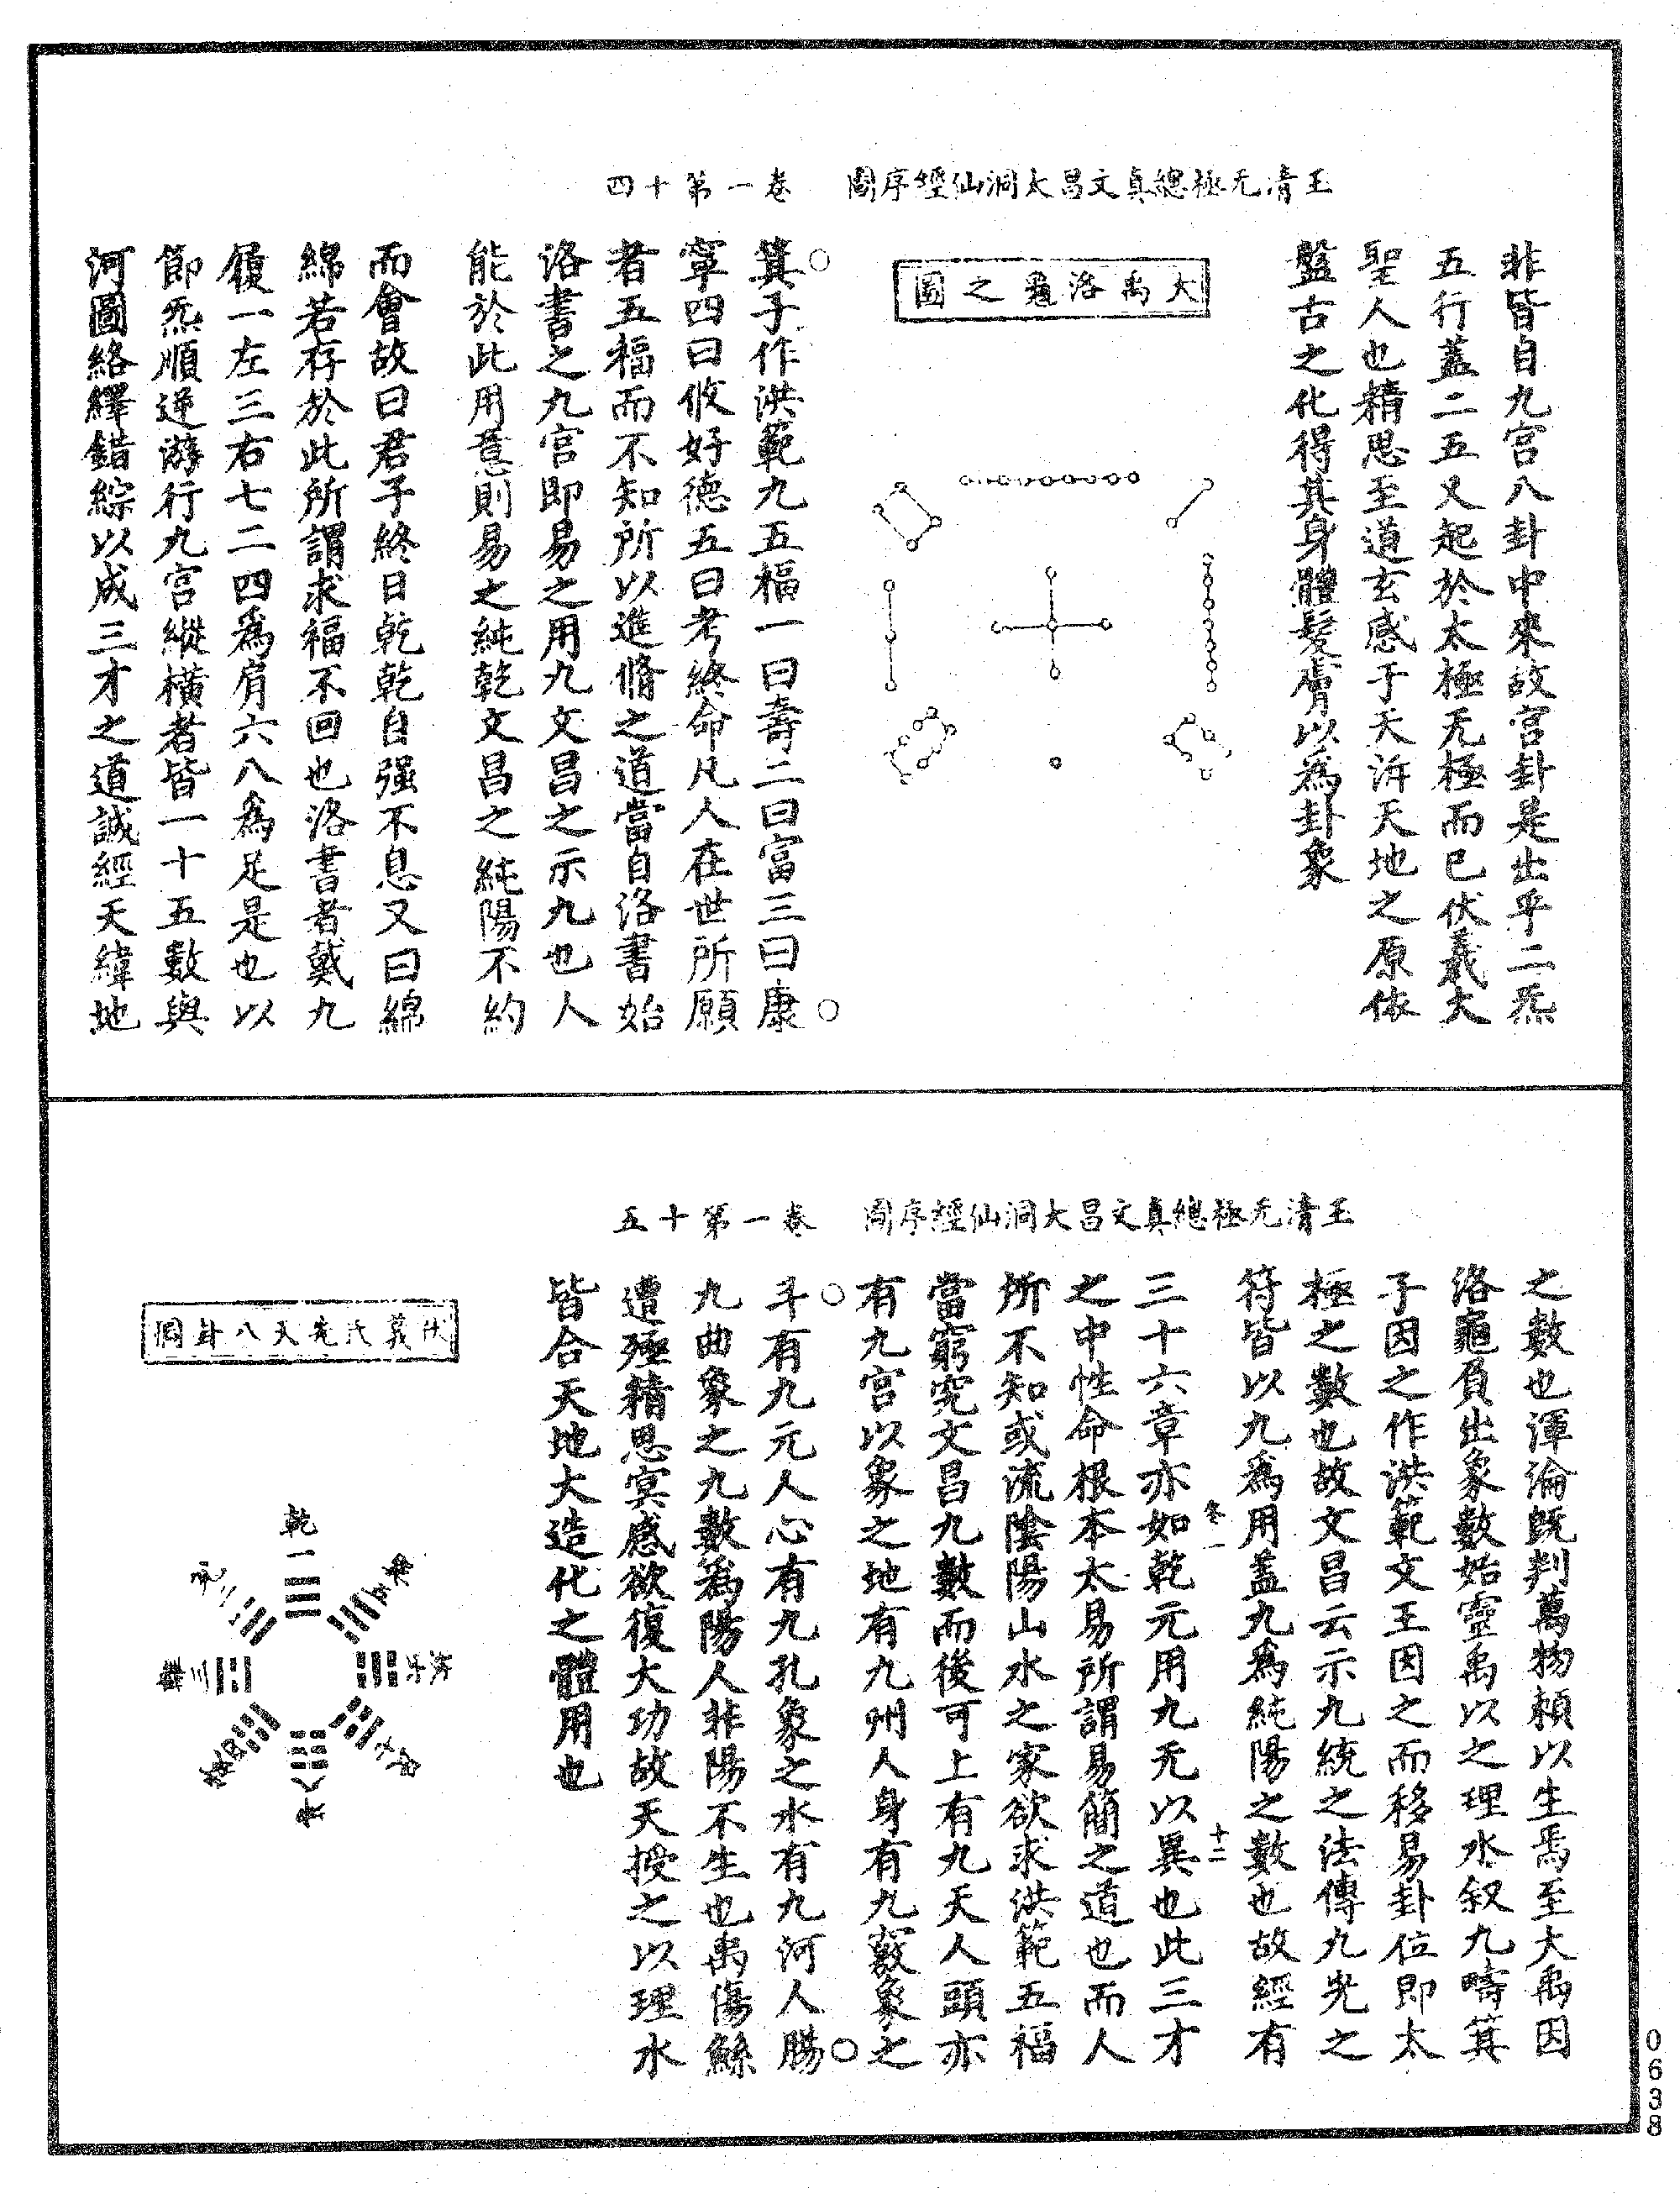 玉清无極總真文昌大洞仙經序圖　卷一第十四
非皆自九宮八卦中來故宮卦是出乎二炁
五行蓋二五又起於太極无極而已伏羲大
聖人也精思至道玄感于天泝天地之原依
盤古之化得其身體髮膚以為卦象
大禹洛龜之圖
箕子作洪範九五福一曰壽二曰富三曰康
寧四曰攸好德五曰考終命凡人在世所願
者五福而不知所以進脩之道當自洛書始
洛書之九宮即易之用九文昌之示九也人
能於此用意則易之純乾文昌之純陽不約
而會故曰君子終日乾乾自强不息又曰綿
綿若存於此所謂求福不回也洛書者戴九
履一左三右七二四為肩六八為足是也以
節炁順逆游行九宮縱橫者皆一十五數與
河圖絡繹錯綜以成三才之道誠經天緯地
玉清无極總真文昌大洞仙經序圖　卷一第十五
之數也渾淪既判萬物賴以生焉至大禹因
洛龜負出象數始靈禹以之理水叙九疇箕
子因之作洪範文王因之而移易卦位即太
極之數也故文昌云示九統之法傳九光之
符皆以九為用蓋九為純陽之數也故經有
卷一　十二
三十六章亦如乾元用九无以異也此三才
之中性命根本太易所謂易簡之道也而人
所不知或流陰陽山水之家欲求洪範五福
當窮究文昌九數而後可上有九天人頭亦
有九宮以象之地有九州人身有九竅象之
斗有九元人心有九孔象之水有九河人腸
九曲象之九數為陽人非陽不生也禹傷鯀
遭殛精思冥感欲復大功故天授之以理水
皆合天地大造化之體用也
伏羲氏先天八卦圖
乾一
二
三
五
六
七
八
0638